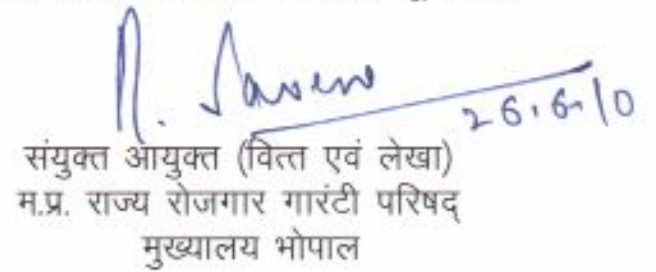 26.6.10
संयुक्त आयुक्त (वित्त एवं लेखा)
म.प्र. राज्य रोजगार गारंटी परिषद्
मुख्यालय भोपाल